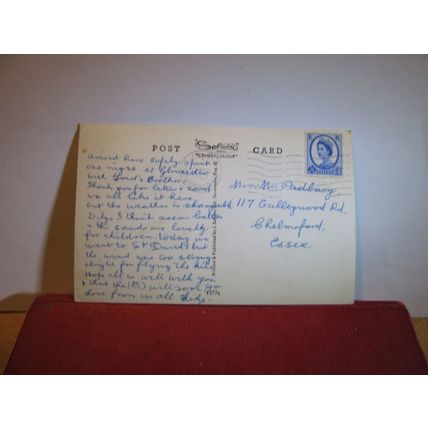 POST Salmon CARD
CAMERACOLOUR
arrived here safely spent
one night at Gloucester
with Lord's Brother
Thank you for letter & card
we all like it here
but the weather is changeable
I think seem better
& the sand are lovely
for children today we
went to St Davids but
the wind was too strong
alright for flying the kite
Hope all is well with you
& that the (B) will soon
Love from us all
Printed & Published by J. Salmon Ltd., Sevenoaks, Eng. ©
Mr & Mrs Padbury
117 Galleywood Rd,
Chelmsford,
Essex.